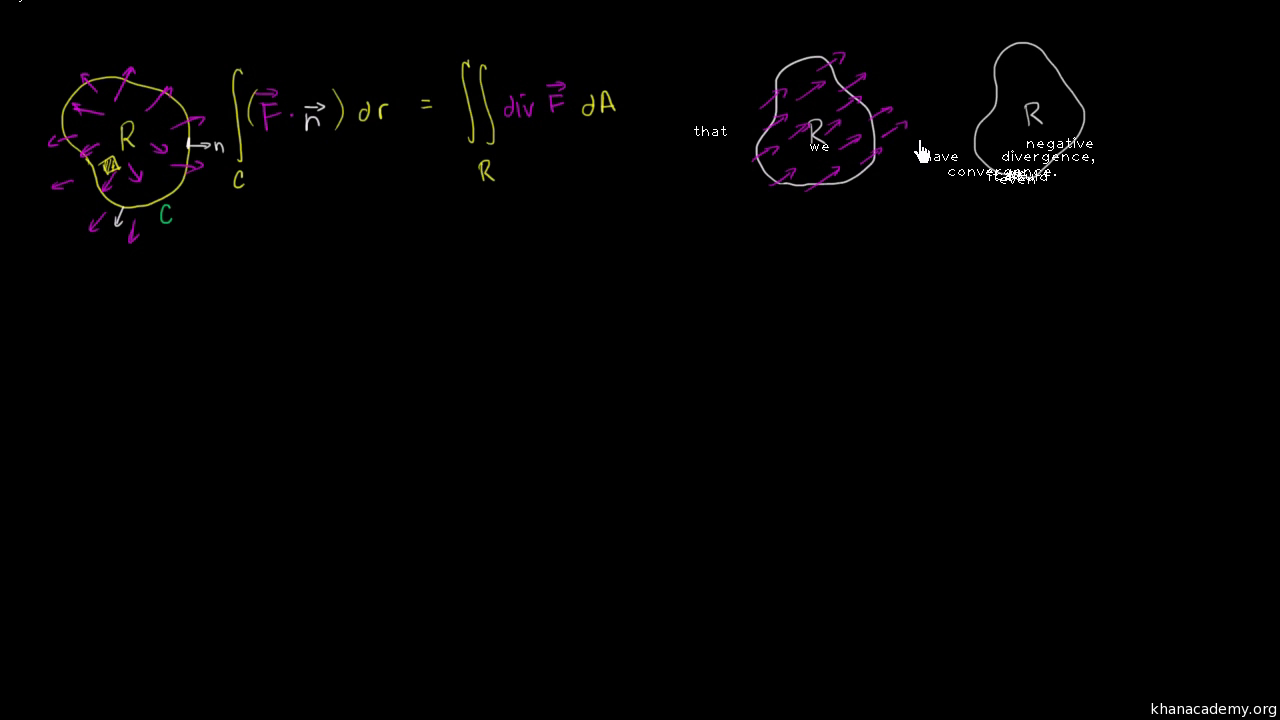 R
n
C
∫ (F⃗ · n⃗) dr = ∬ div F⃗ dA
C
R
that
R
we
R
negative
divergence,
convergence.
even
khanacademy.org